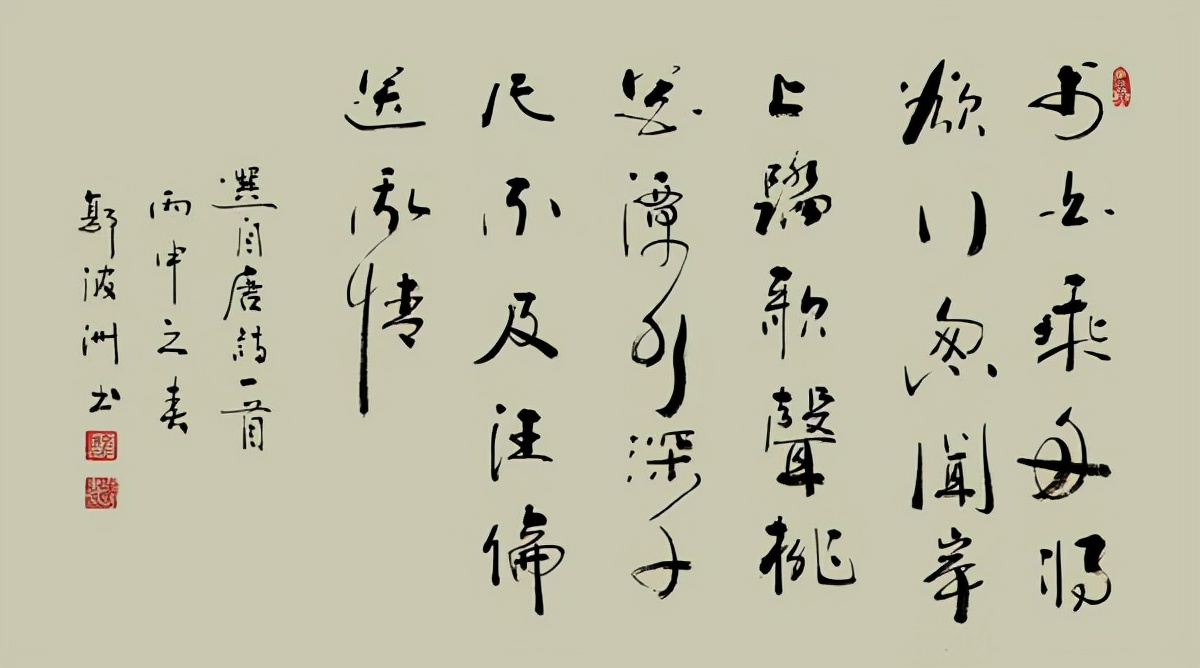 李白乘舟将
欲行忽聞岸
上踏歌聲桃
花潭水深千
尺不及汪倫
送我情
選自唐詩一首
丙申之春
鄭波洲书